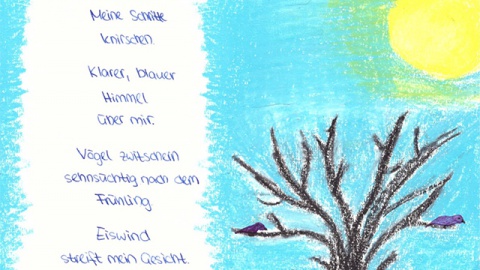 Meine Schritte
knirschen.
Klarer, blauer
Himmel
über mir.
Vögel zwitschern
sehnsüchtig nach dem
Frühling
Eiswind
streift mein Gesicht.